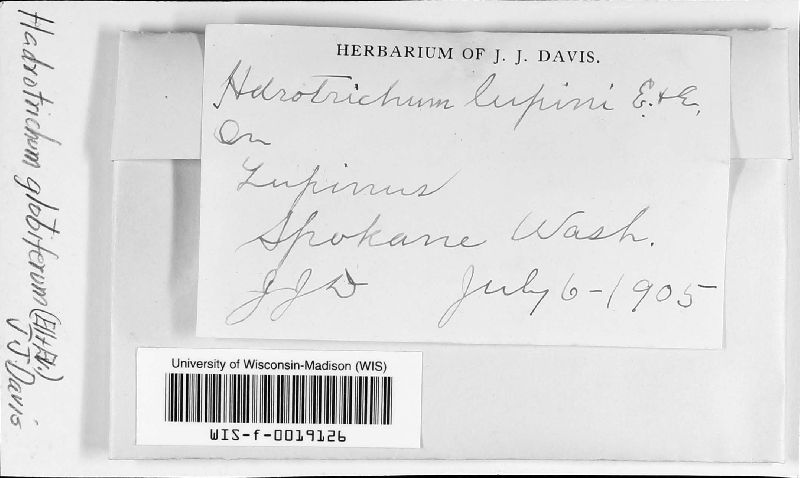 HERBARIUM OF J. J. DAVIS.
Hdrotrichum lupini E. & E.
On
Lupinus
Spokane Wash.
JJD July 6-1905
University of Wisconsin-Madison (WIS)
WIS-f-0019126
Hadrotrichum globiferum (Ell & Ev.)
J. J. Davis